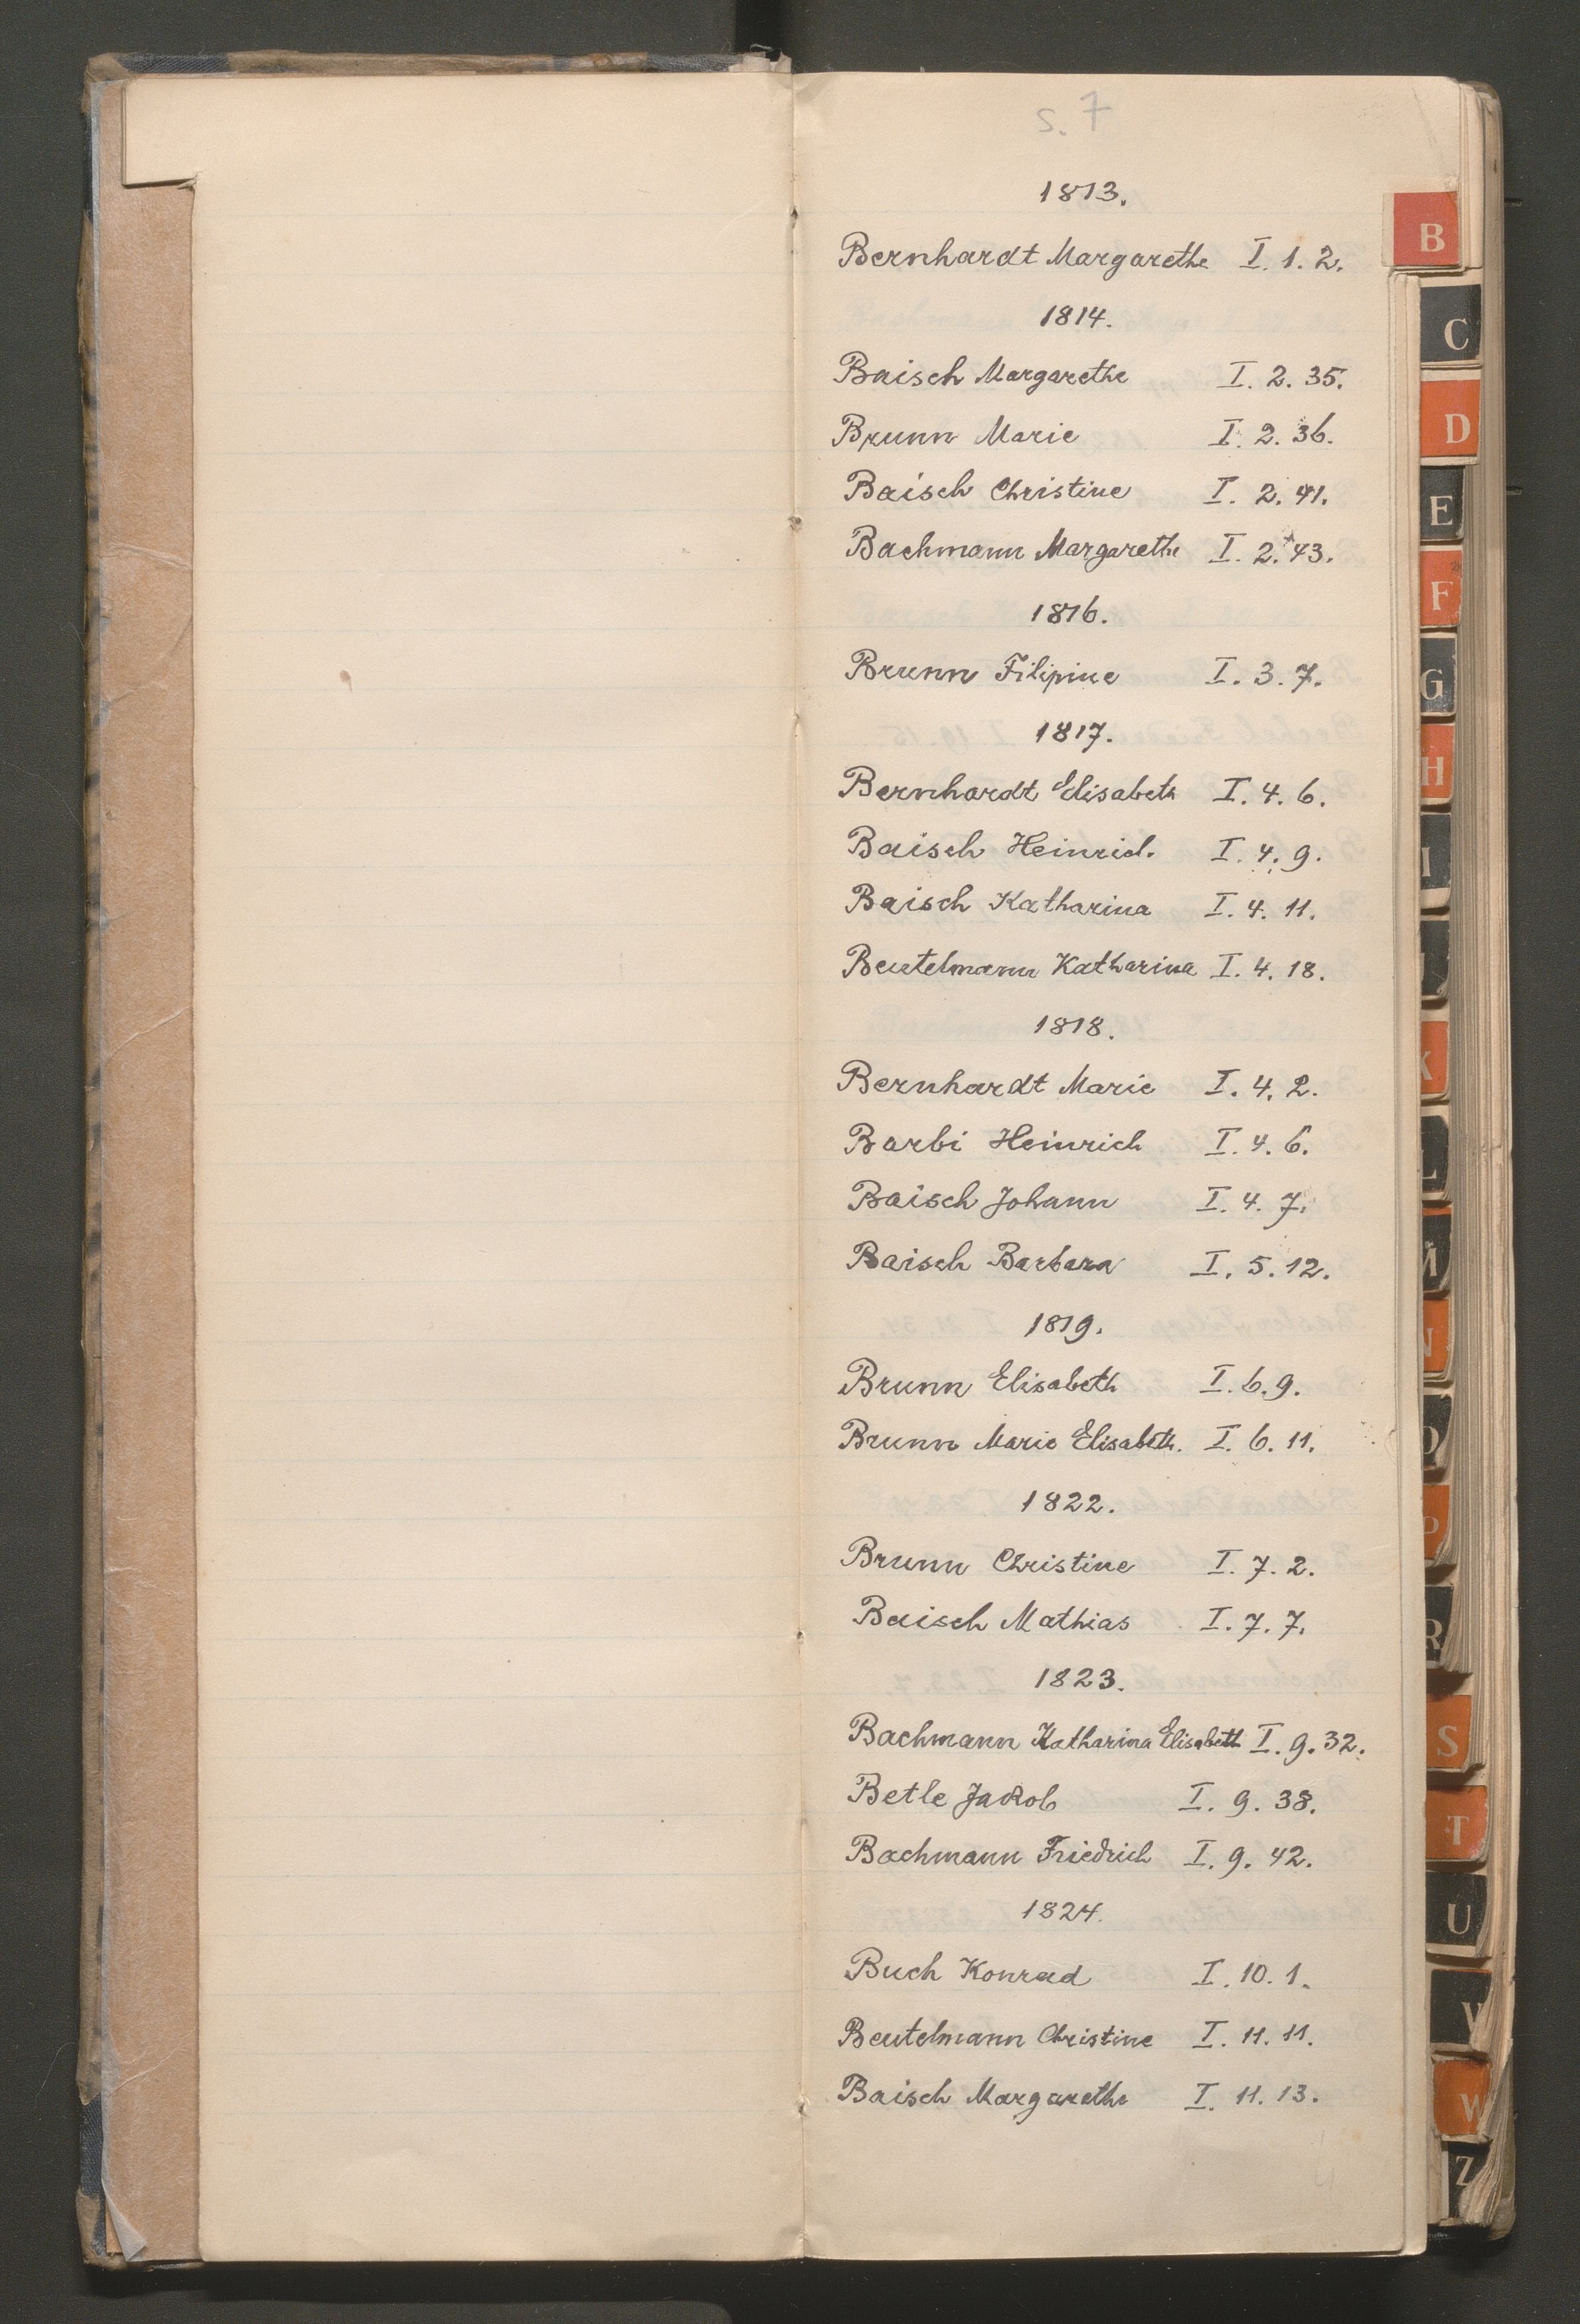 s. 7
1813.
Bernhardt Margarethe I. 1. 2.
1814.
Baisch Margarethe I. 2. 35.
Brunn Marie I. 2. 36.
Baisch Christine I. 2. 41.
Bachmann Margarethe I. 2. 43.
1816.
Brunn Filipine I. 3. 7.
1817.
Bernhardt Elisabeth I. 4. 6.
Baisch Heinrich I. 4. 9.
Baisch Katharina I. 4. 11.
Beutelmann Katharina I. 4. 18.
1818.
Bernhardt Marie I. 4. 2.
Barbi Heinrich I. 4. 6.
Baisch Johann I. 4. 7.
Baisch Barbara I. 5. 12.
1819.
Brunn Elisabeth I. 6. 9.
Brunn Marie Elisabeth. I. 6. 11.
1822.
Brunn Christine I. 7. 2.
Baisch Mathias I. 7. 7.
1823.
Bachmann Katharina Elisabeth I. 9. 32.
Betle Jakob I. 9. 38.
Bachmann Friedrich I. 9. 42.
1824.
Buch Konrad I. 10. 1.
Beutelmann Christine I. 11. 11.
Baisch Margarethe I. 11. 13.
B
C
D
E
F
G
H
I
K
L
M
N
O
P
R
S
T
U
V
W
Z